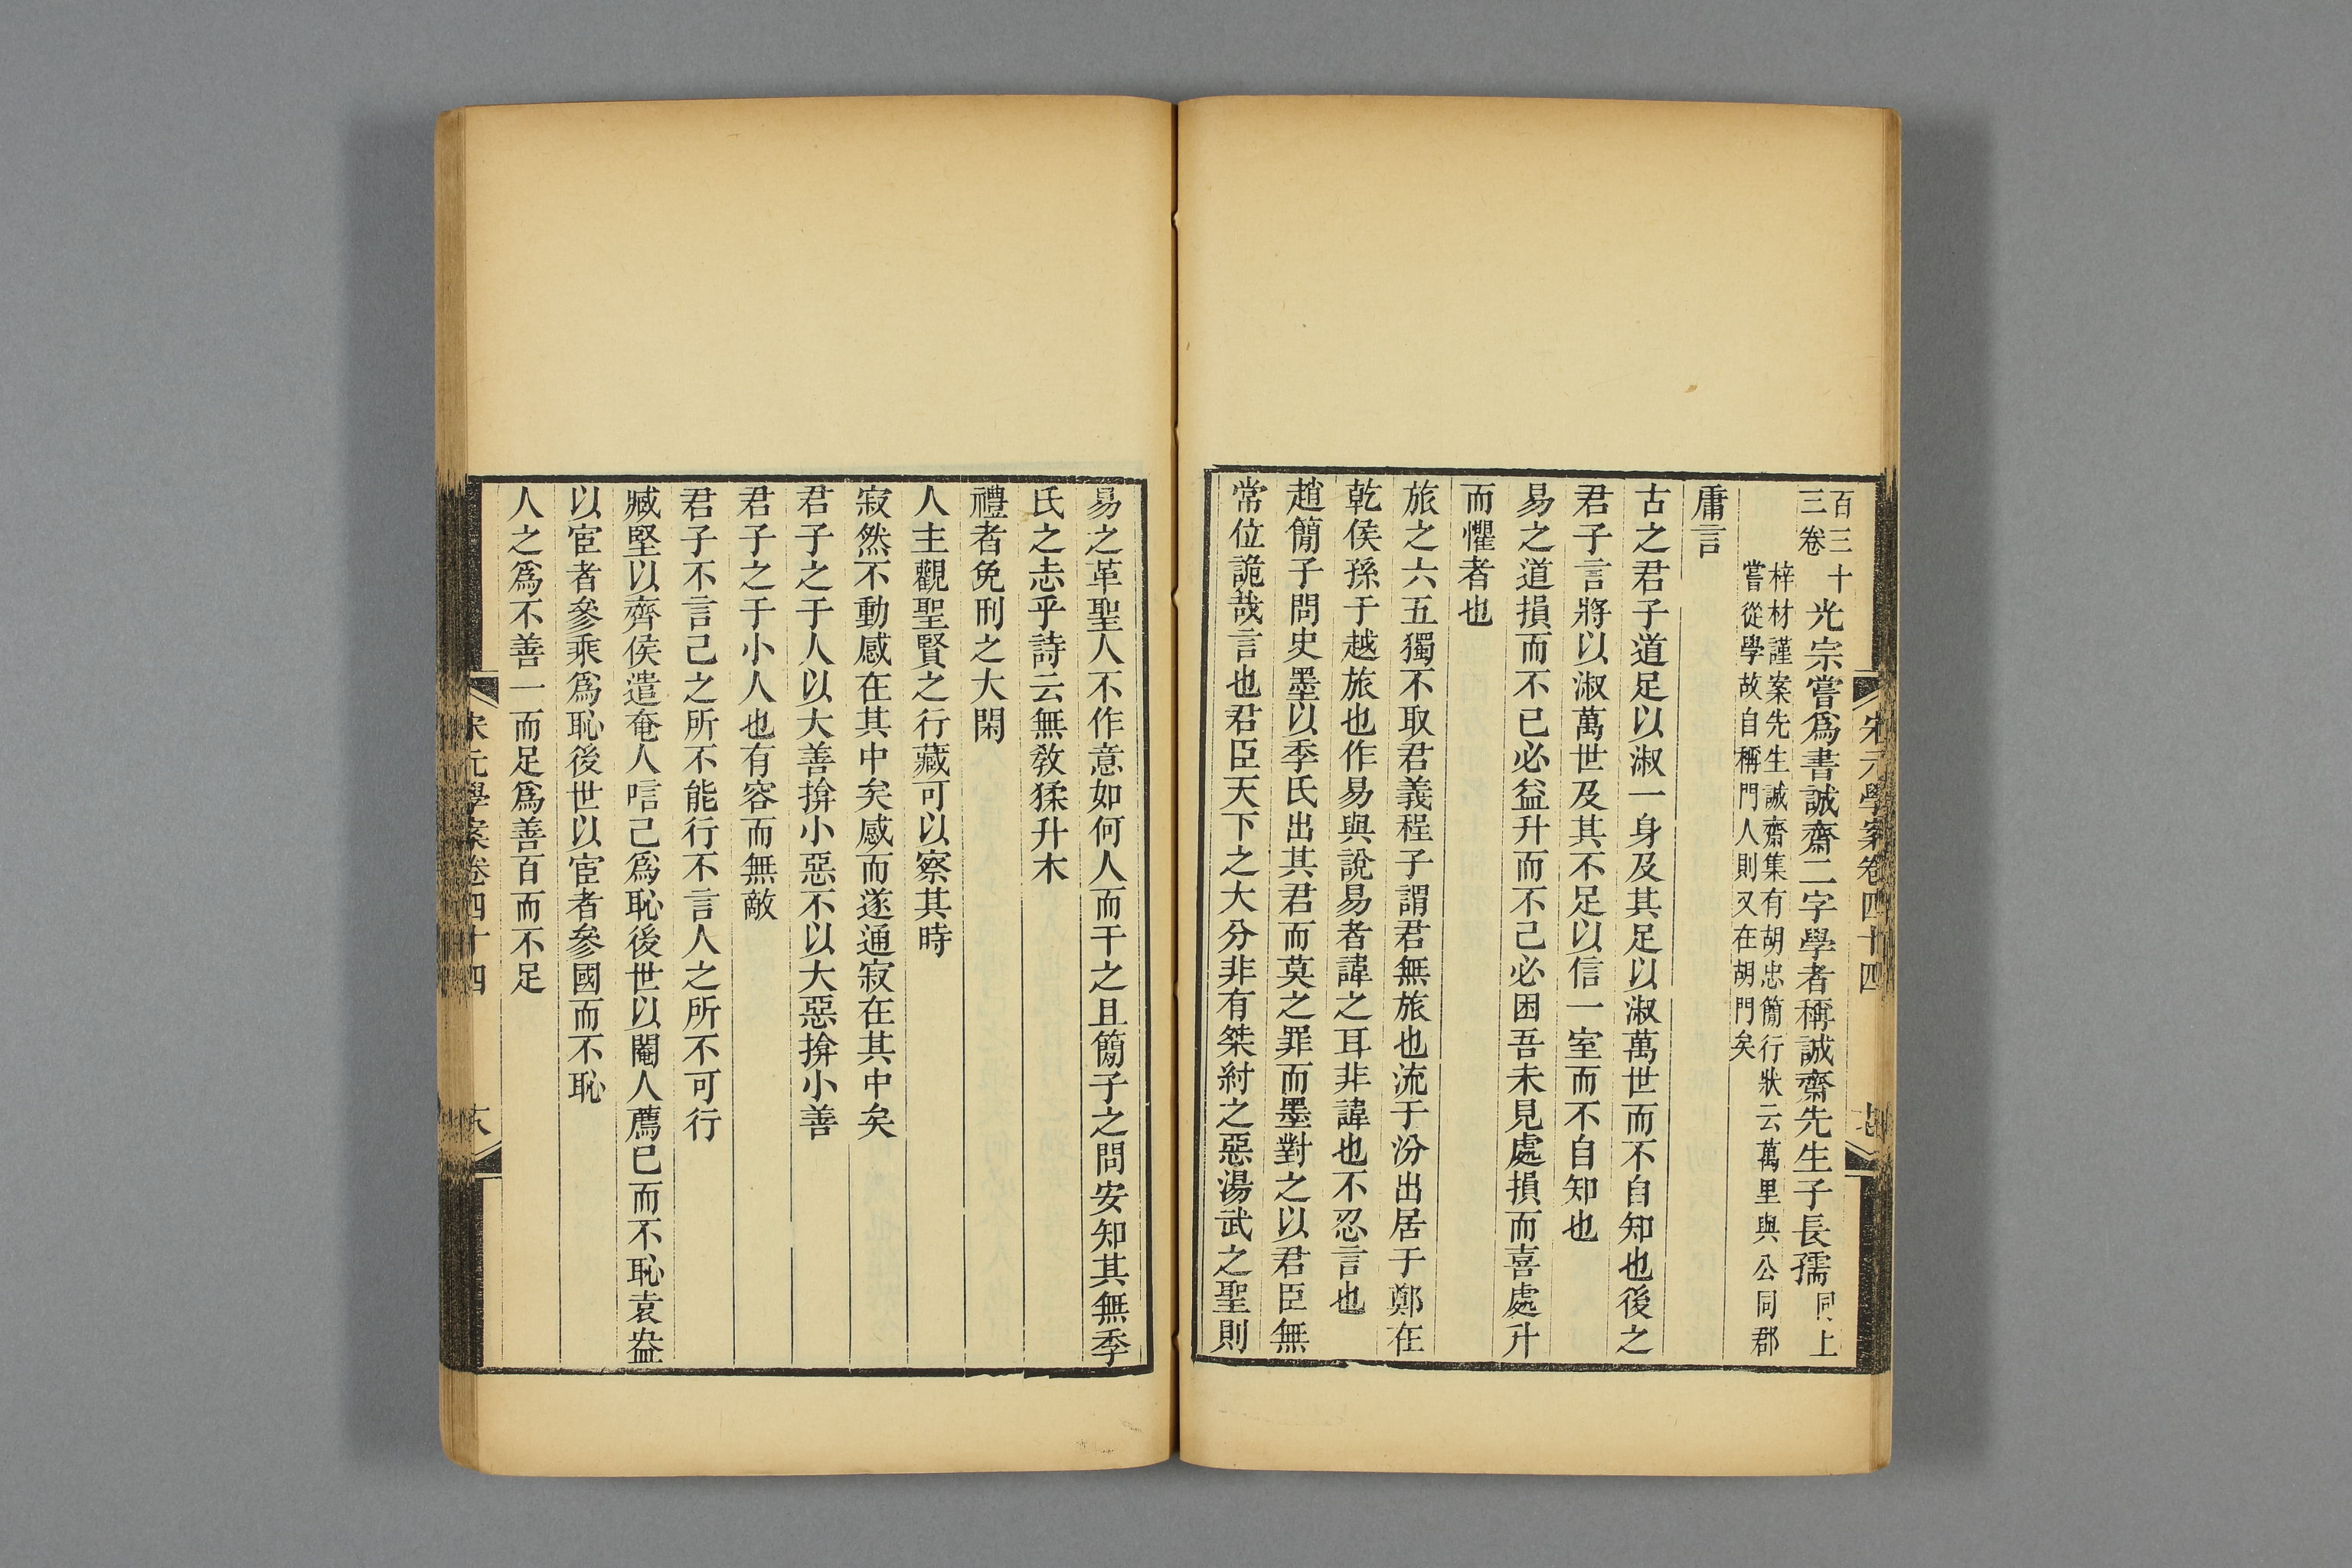 宋元學案卷四十四
百三十
三卷
光宗嘗爲書誠齋二字學者稱誠齋先生子長孺
同上
梓材謹案先生誠齋集有胡忠簡行狀云萬里與公同郡
嘗從學故自稱門人則又在胡門矣
庸言
古之君子道足以淑一身及其足以淑萬世而不自知也後之
君子言將以淑萬世及其不足以信一室而不自知也
易之道損而不已必益升而不己必困吾未見處損而喜處升
而懼者也
旅之六五獨不取君義程子謂君無旅也流于汾出居于鄭在
乾侯孫于越旅也作易與說易者諱之耳非諱也不忍言也
趙簡子問史墨以季氏出其君而莫之罪而墨對之以君臣無
常位詭哉言也君臣天下之大分非有桀紂之惡湯武之聖則
易之革聖人不作意如何人而干之且簡子之問安知其無季
氏之志乎詩云無敎猱升木
禮者免刑之大閑
人主觀聖賢之行藏可以察其時
寂然不動感在其中矣感而遂通寂在其中矣
君子之于人以大善揜小惡不以大惡揜小善
君子之于小人也有容而無敵
君子不言己之所不能行不言人之所不可行
臧堅以齊侯遣奄人唁己爲恥後世以閹人薦已而不恥袁盎
以宦者參乘爲恥後世以宦者參國而不恥
人之爲不善一而足爲善百而不足
宋元學案卷四十四